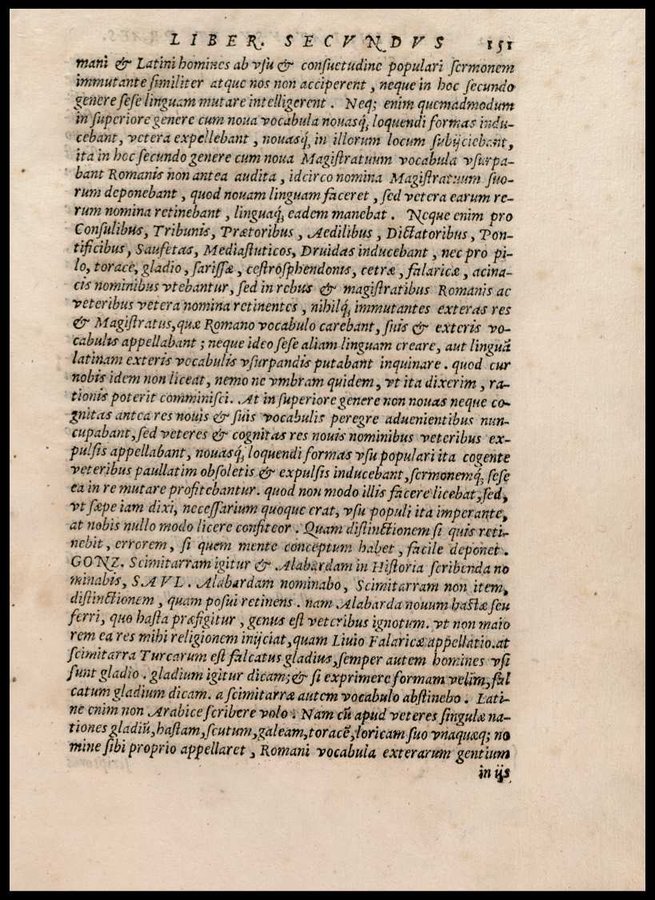 LIBER. SECVNDVS 151
mani & Latini homines ab vsu & consuetudine populari sermonem
immutante similiter atque nos non acciperent, neque in hoc secundo
genere sese linguam mutare intelligerent. Neq; enim quemadmodum
in superiore genere cum noua vocabula nouasq́; loquendi formas indu-
cebant, vetera expellebant, nouasq́; in illorum locum subijciebant,
ita in hoc secundo genere cum noua Magistratuum vocabula vsurpa-
bant Romanis non antea audita, idcirco nomina Magistratuum suo-
rum deponebant, quod nouam linguam faceret, sed vetera earum re-
rum nomina retinebant, linguaq́; eadem manebat. Neque enim pro
Consulibus, Tribunis, Prætoribus, Aedilibus, Dictatoribus, Pon-
tificibus, Saufetas, Mediastuticos, Druidas inducebant, nec pro pi-
lo, torace, gladio, sarissæ, cestrosphendonis, cetræ, falaricæ, acina-
cis nominibus vtebantur, sed in rebus & magistratibus Romanis ac
veteribus vetera nomina retinentes, nihilq́; immutantes exteras res
& Magistratus, quæ Romano vocabulo carebant, suis & exteris vo-
cabulis appellabant; neque ideo sese aliam linguam creare, aut linguā
latinam exteris vocabulis vsurpandis putabant inquinare. quod cur
nobis idem non liceat, nemo ne vmbram quidem, vt ita dixerim, ra-
tionis poterit comminisci. At in superiore genere non nouas neque co-
gnitas antea res nouis & suis vocabulis peregre aduenientibus nun-
cupabant, sed veteres & cognitas res nouis nominibus veteribus ex-
pulsis appellabant, nouasq́; loquendi formas vsu populari ita cogente
veteribus paullatim obsoletis & expulsis inducebant, sermonemq́; sese
ea in re mutare profitebantur. quod non modo illis facere licebat, sed,
vt sæpe iam dixi, necessarium quoque erat, vsu populi ita imperante,
at nobis nullo modo licere confiteor. Quam distinctionem si quis reti-
nebit, errorem, si quem mente conceptum habet, facile deponet.
GONZ. Scimitarram igitur & Alabardam in Historia scribenda no
minabis, SAVL. Alabardam nominabo, Scimitarram non item,
distinctionem, quam posui retinens. nam Alabarda nouum hastæ seu
ferri, quo hasta præfigitur, genus est veteribus ignotum. vt non maio
rem ea res mihi religionem inijciat, quam Liuio Falaricæ appellatio. at
scimitarra Turcarum est falcatus gladius, semper autem homines vsi
sunt gladio. gladium igitur dicam; & si exprimere formam velim, fal
catum gladium dicam. a scimitarræ autem vocabulo abstinebo. Lati-
ne enim non Arabice scribere volo. Nam cū apud veteres singulæ na-
tiones gladiū, hastam, scutum, galeam, toracē, loricam suo vnaquæq; no
mine sibi proprio appellaret, Romani vocabula exterarum gentium
in ijs